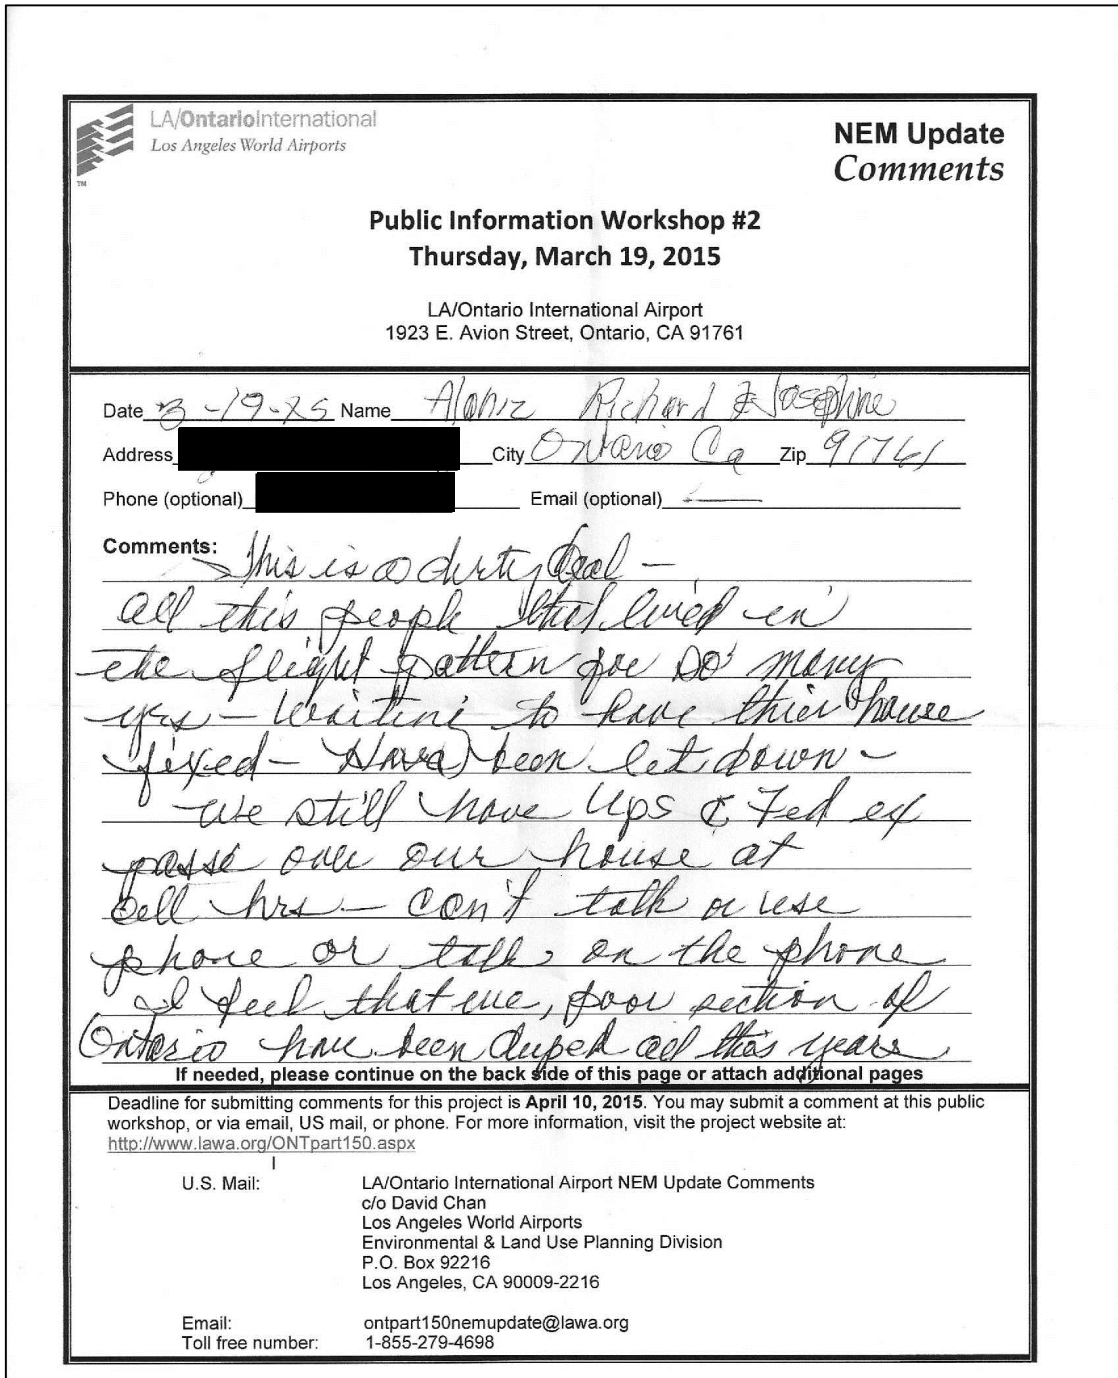 LA/OntarioInternational
Los Angeles World Airports
TM
NEM Update
Comments
Public Information Workshop #2
Thursday, March 19, 2015
LA/Ontario International Airport
1923 E. Avion Street, Ontario, CA 91761
Date 3-19-15 Name Richard & Josephine
Address City Ontario Ca Zip 91761
Phone (optional) Email (optional) —
Comments: This is a dirty deal —
all this people that lived in
the flight pattern for so many
yrs — waiting to have thier house
fixed — Have been let down —
We still have Ups & Fed ex
passé over our house at
all hrs — can't talk or use
phone or talk on the phone
I feel that we, poor section of
Ontario have been duped all this years
If needed, please continue on the back side of this page or attach additional pages
Deadline for submitting comments for this project is April 10, 2015. You may submit a comment at this public
workshop, or via email, US mail, or phone. For more information, visit the project website at:
http://www.lawa.org/ONTpart150.aspx
U.S. Mail: LA/Ontario International Airport NEM Update Comments
c/o David Chan
Los Angeles World Airports
Environmental & Land Use Planning Division
P.O. Box 92216
Los Angeles, CA 90009-2216
Email: ontpart150nemupdate@lawa.org
Toll free number: 1-855-279-4698